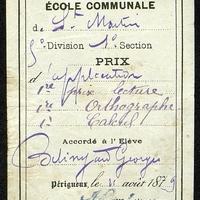 ÉCOLE COMMUNALE
de St Martin
5e Division 1e Section
PRIX
d'application
1re prix lecture
1re Orthographe
1re Calcul
Accordé à l'Elève
Georges
Périgueux, le août 187